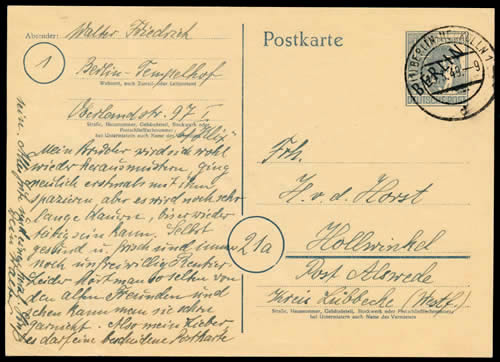 Absender: Walter Friedrich
1
Berlin-Tempelhof
Wohnort, auch Zustell- oder Leitpostamt
Oberlandstr. 97 I
Straße, Hausnummer, Gebäudeteil, Stockwerk oder
Postschließfachnummer;
bei Untermietern auch Name des Vermieters
Mein Bruder wird sich wohl
wieder herausmustern, ging
neulich erstmals mit ihm
spazieren, aber es wird noch sehr
lange dauern, bis er wieder
tätig sein kann. Selbst
gesund u. frisch sind immer
noch unfreiwillig Rentier.
Leider hört man so selten von
den alten Freunden und
sehen kann man sie schon
garnicht. Also mein Lieber
es darf eine Postkarte
Postkarte
(1) BERLIN-NEUKÖLLN 1
BERLIN
Frh.
H. v. d. Horst
21a
Hollwinkel
Post Alswede
Kreis Lübbecke (Westf.)
Straße, Hausnummer, Gebäudeteil, Stockwerk oder Postschließfachnummer;
bei Untermietern auch Name des Vermieters